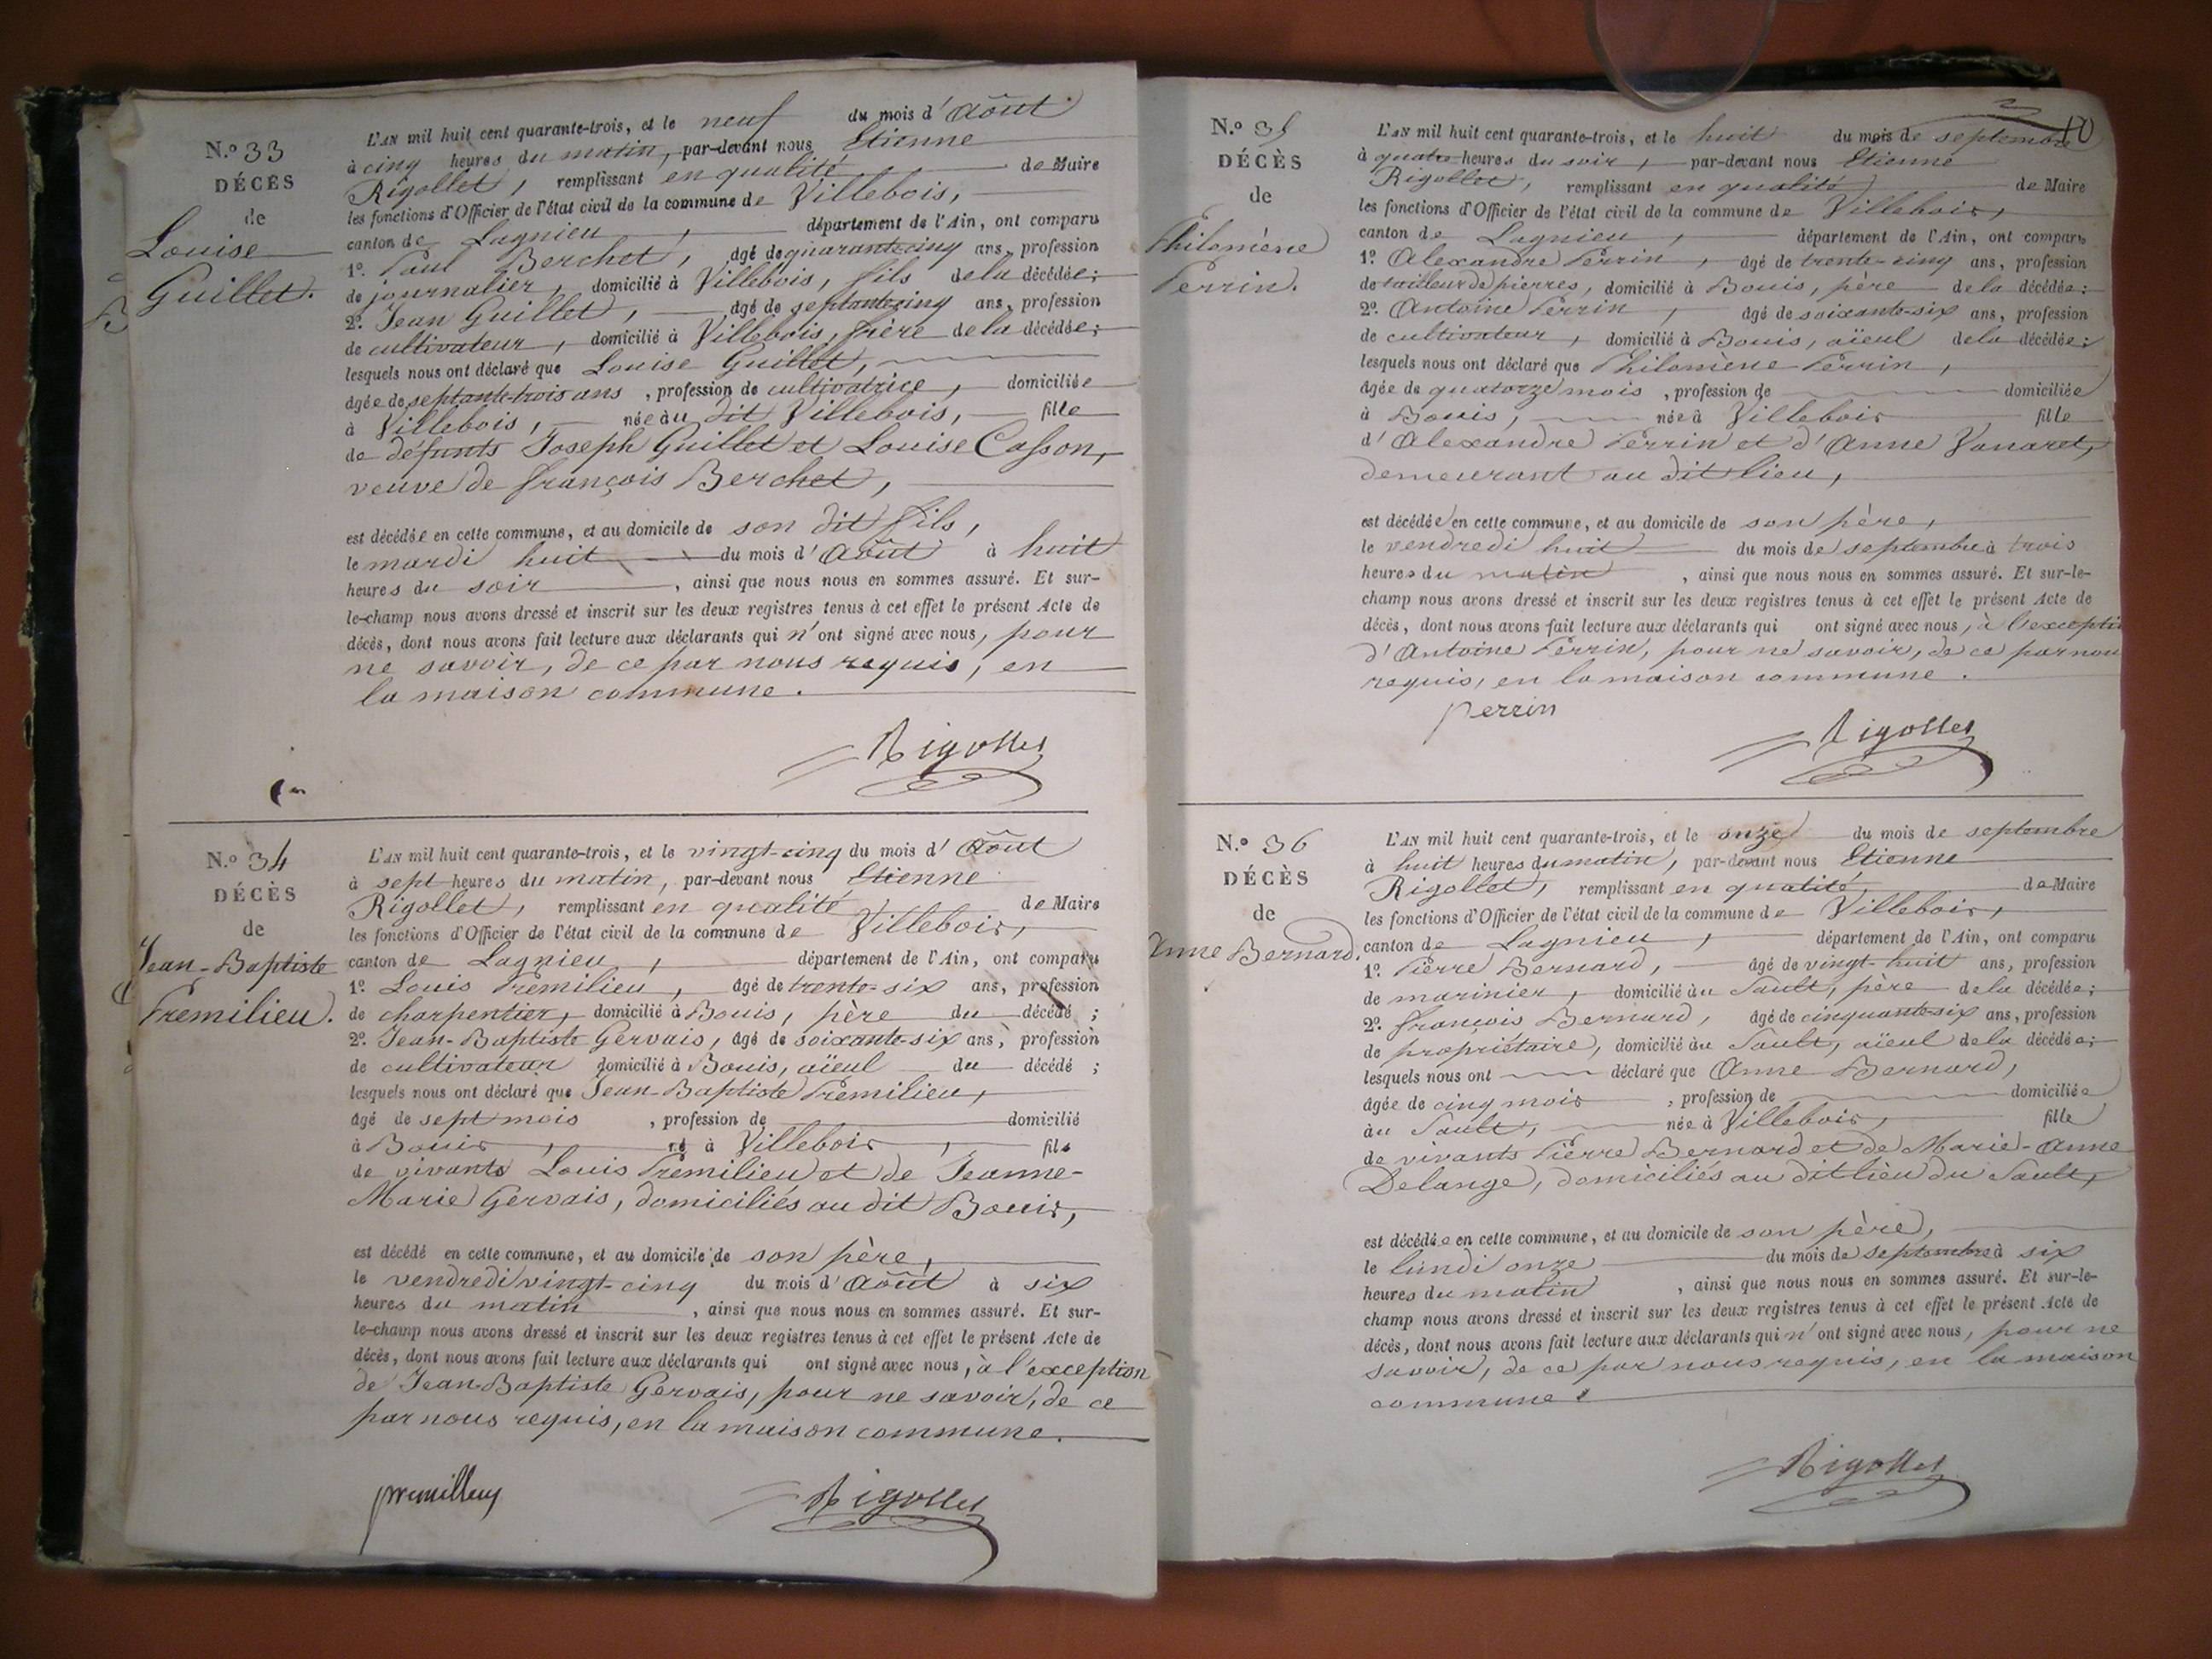 N.º 33
DÉCÈS
de
Louise
Guillet.
L'AN mil huit cent quarante-trois, et le neuf du mois d'Août
à cinq heures du matin, par-devant nous Etienne
Rigollet, remplissant en qualité de Maire
les fonctions d'Officier de l'état civil de la commune de Villebois,
canton de Lagnieu, département de l'Ain, ont comparu
1º. Paul Berchet, âgé de quarante-cinq ans, profession
de journalier, domicilié à Villebois, fils de la décédée;
2º. Jean Guillet, âgé de septante-cinq ans, profession
de cultivateur, domicilié à Villebois, frère de la décédée;
lesquels nous ont déclaré que Louise Guillet,
âgée de septante-trois ans, profession de cultivatrice, domiciliée
à Villebois, née àu dit Villebois, fille
de défunts Joseph Guillet et Louise Casson,
veuve de François Berchet,
est décédée en cette commune, et au domicile de son dit fils,
le mardi huit du mois d'Août à huit
heures du soir, ainsi que nous nous en sommes assuré. Et sur-
le-champ nous avons dressé et inscrit sur les deux registres tenus à cet effet le présent Acte de
décès, dont nous avons fait lecture aux déclarants qui n'ont signé avec nous, pour
ne savoir, de ce par nous requis, en
la maison commune.
Rigollet
N.º 34
DÉCÈS
de
Jean-Baptiste
Premilieu.
L'AN mil huit cent quarante-trois, et le vingt-cinq du mois d'Août
à sept heures du matin, par-devant nous Etienne
Rigollet, remplissant en qualité de Maire
les fonctions d'Officier de l'état civil de la commune de Villebois,
canton de Lagnieu, département de l'Ain, ont comparu
1º. Louis Premilieu, âgé de trente-six ans, profession
de charpentier, domicilié à Bouis, père du décédé;
2º. Jean-Baptiste Gervais, âgé de soixante-six ans, profession
de cultivateur domicilié à Bouis, aïeul du décédé;
lesquels nous ont déclaré que Jean-Baptiste Premilieu,
âgé de sept mois, profession de domicilié
à Bouis, né à Villebois, fils
de vivants Louis Premilieu et de Jeanne-
Marie Gervais, domiciliés au dit Bouis,
est décédé en cette commune, et au domicile de son père,
le vendredi vingt-cinq du mois d'Août à six
heures du matin, ainsi que nous nous en sommes assuré. Et sur-
le-champ nous avons dressé et inscrit sur les deux registres tenus à cet effet le présent Acte de
décès, dont nous avons fait lecture aux déclarants qui ont signé avec nous, à l'exception
de Jean-Baptiste Gervais, pour ne savoir, de ce
par nous requis, en la maison commune.
premillieu Rigollet
10
N.º 35
DÉCÈS
de
Philomène
Perrin.
L'AN mil huit cent quarante-trois, et le huit du mois de septembre
à quatre heures du soir, par-devant nous Etienne
Rigollet, remplissant en qualité de Maire
les fonctions d'Officier de l'état civil de la commune de Villebois,
canton de Lagnieu, département de l'Ain, ont comparu
1º. Alexandre Perrin, âgé de trente-cinq ans, profession
de tailleur de pierres, domicilié à Bouis, père de la décédée;
2º. Antoine Perrin, âgé de soixante-six ans, profession
de cultivateur, domicilié à Bouis, aïeul de la décédée;
lesquels nous ont déclaré que Philomène Perrin,
âgée de quatorze mois, profession de domiciliée
à Bouis, née à Villebois fille
d'Alexandre Perrin et d'Anne Vanaret,
demeurant au dit lieu,
est décédée en cette commune, et au domicile de son père,
le vendredi huit du mois de septembre à trois
heures du matin, ainsi que nous nous en sommes assuré. Et sur-le-
champ nous avons dressé et inscrit sur les deux registres tenus à cet effet le présent Acte de
décès, dont nous avons fait lecture aux déclarants qui ont signé avec nous, à l'exceptio
d'Antoine Perrin, pour ne savoir, de ce par nou
requis, en la maison commune.
perrin
Rigollet
N.º 36
DÉCÈS
de
Anne Bernard.
L'AN mil huit cent quarante-trois, et le onze du mois de septembre
à huit heures du matin, par-devant nous Etienne
Rigollet, remplissant en qualité, de Maire
les fonctions d'Officier de l'état civil de la commune de Villebois,
canton de Lagnieu, département de l'Ain, ont comparu
1º. Pierre Bernard, âgé de vingt-huit ans, profession
de marinier, domicilié àu Sault, père de la décédée;
2º. François Bernard, âgé de cinquante-six ans, profession
de propriétaire, domicilié àu Sault, aïeul de la décédée;
lesquels nous ont déclaré que Anne Bernard,
âgée de cinq mois, profession de domiciliée
àu Sault, née à Villebois, fille
de vivants Pierre Bernard et de Marie-Anne
Delange, domiciliés au dit lieu du Sault,
est décédée en cette commune, et au domicile de son père,
le lundi onze du mois de septembre à six
heures du matin, ainsi que nous nous en sommes assuré. Et sur-le-
champ nous avons dressé et inscrit sur les deux registres tenus à cet effet le présent Acte de
décès, dont nous avons fait lecture aux déclarants qui n'ont signé avec nous, pour ne
savoir, de ce par nous requis, en la maison
commune.
Rigollet